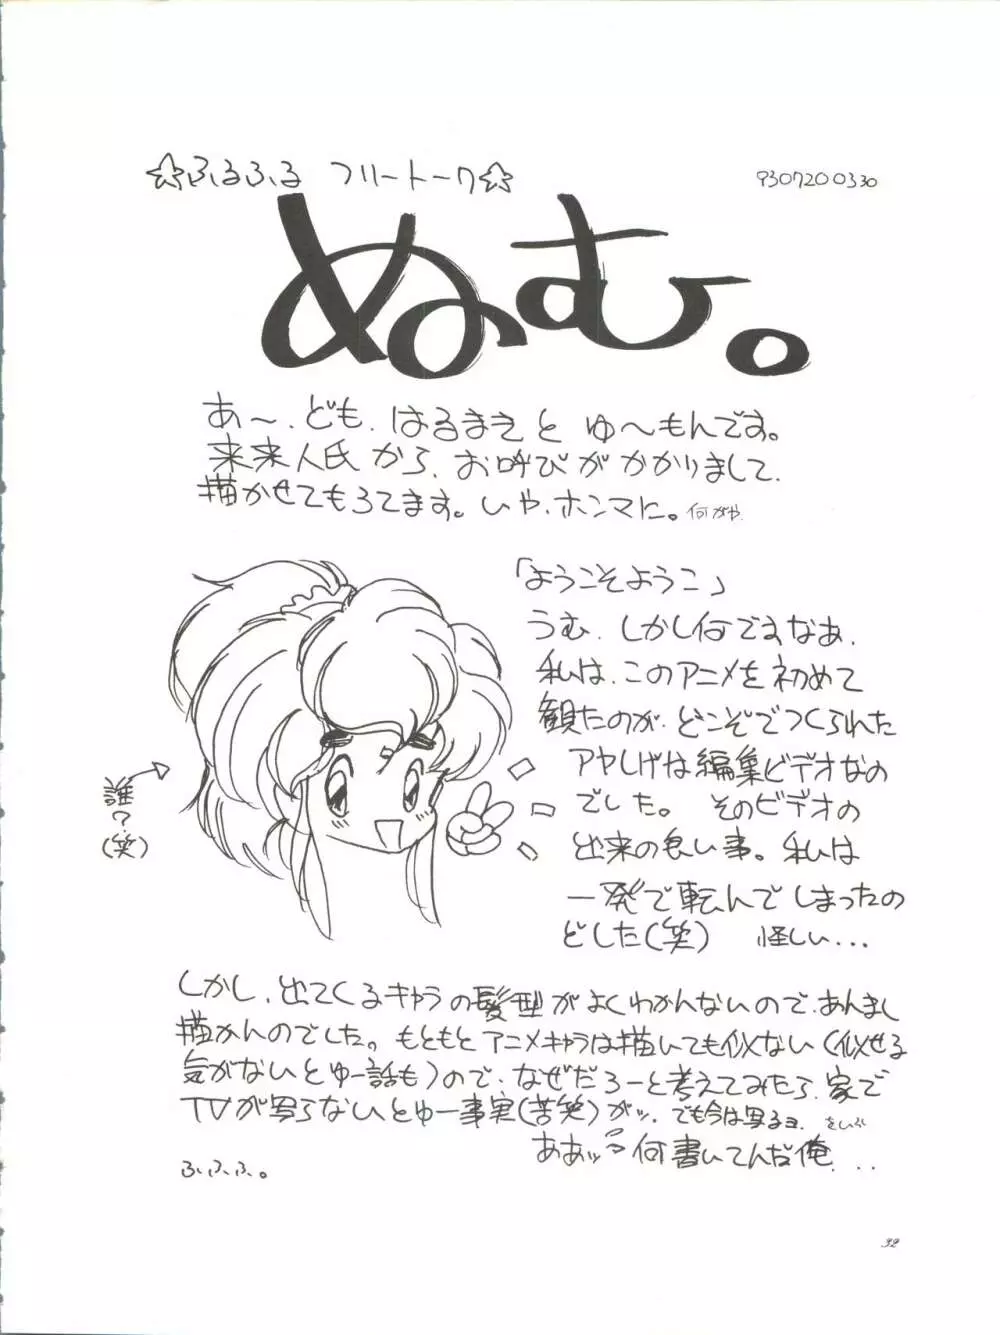 ☆ふるふる フリートーク☆
930720 0330
ぬむ。
あ〜、ども、はるまきと ゆ〜もんです。
来来人氏から、お呼びがかかりまして、
描かせてもろてます。いや、ホンマに。何がや
「ようこそようこ」
うむ、しかし何ですなあ、
私は、このアニメを初めて
観たのが、どこぞでつくられた
アヤしげな編集ビデオなの
でした。 そのビデオの
出来の良い事。私は
一発で転んでしまったの
どした(笑) 怪しい...
誰?
(笑)
しかし、出てくるキャラの髪型がよくわかんないので、あんまし
描かんのでした。もともとアニメキャラは描いても似ない(似せる
気がないとゆー話も)ので、なぜだろーと考えてみたら、家で
TVが写らないとゆー事実(苦笑)がッ、でも今は写るョ、
ああッ 何書いてんだ俺...
ふ、ふ、ふ。
32